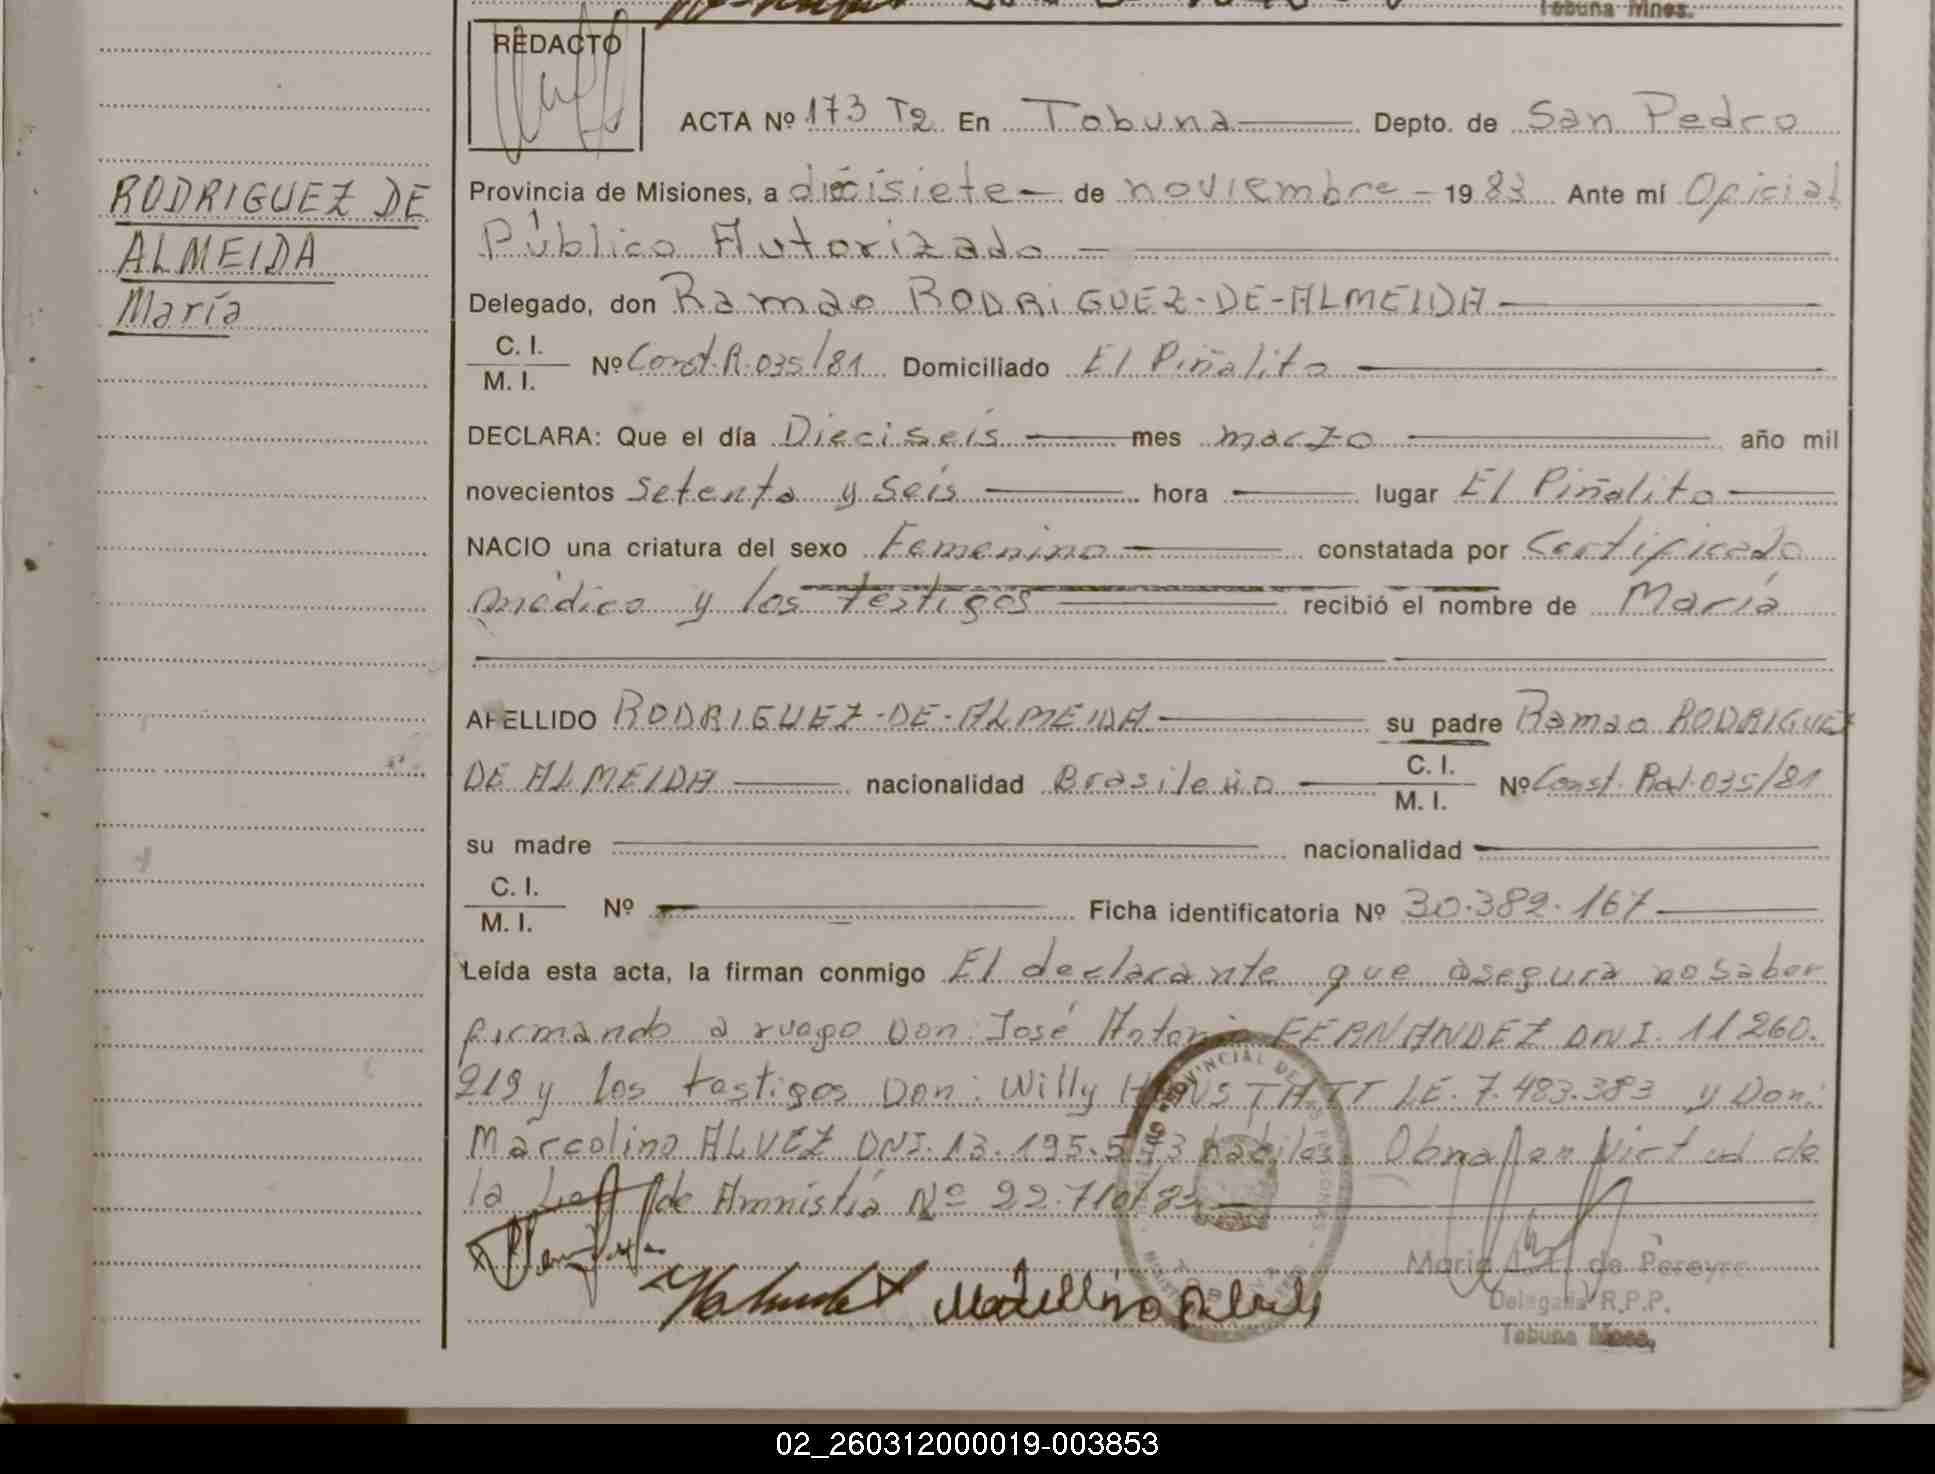 Tobuna Mnes.
REDACTO
ACTA Nº 173 T2 En Tobuna Depto. de San Pedro
RODRIGUEZ DE
ALMEIDA
María
Provincia de Misiones, a diecisiete de noviembre 1983 Ante mí Oficial
Público Autorizado
Delegado, don Ramao RODRIGUEZ-DE-ALMEIDA
C. I.
M. I. Nº Const. R. 035/81 Domiciliado El Piñalito
DECLARA: Que el día Dieciseis mes marzo año mil
novecientos setenta y seis hora lugar El Piñalito
NACIO una criatura del sexo Femenino constatada por Certificado
médico y los testigos recibió el nombre de María
APELLIDO RODRIGUEZ-DE-ALMEIDA su padre Ramao RODRIGUEZ
DE ALMEIDA nacionalidad Brasileño C. I. M. I. Nº Const. Rad. 035/81
su madre nacionalidad
C. I.
M. I. Nº Ficha identificatoria Nº 30.382.167
Leída esta acta, la firman conmigo El declarante que asegura no saber
firmando a ruego Don: José Antonio FERNANDEZ DNI. 11260.
219 y los testigos Don: Willy LE. 7.483.383 y Don:
Marcolino ALVEZ DNI. 13.195.573 habiles. Obra en Virtud de
la Ley de Amnistía Nº 22.710/
Maria de Pereyra
Delegada R.P.P.
Tobuna Mnes.
02_260312000019-003853